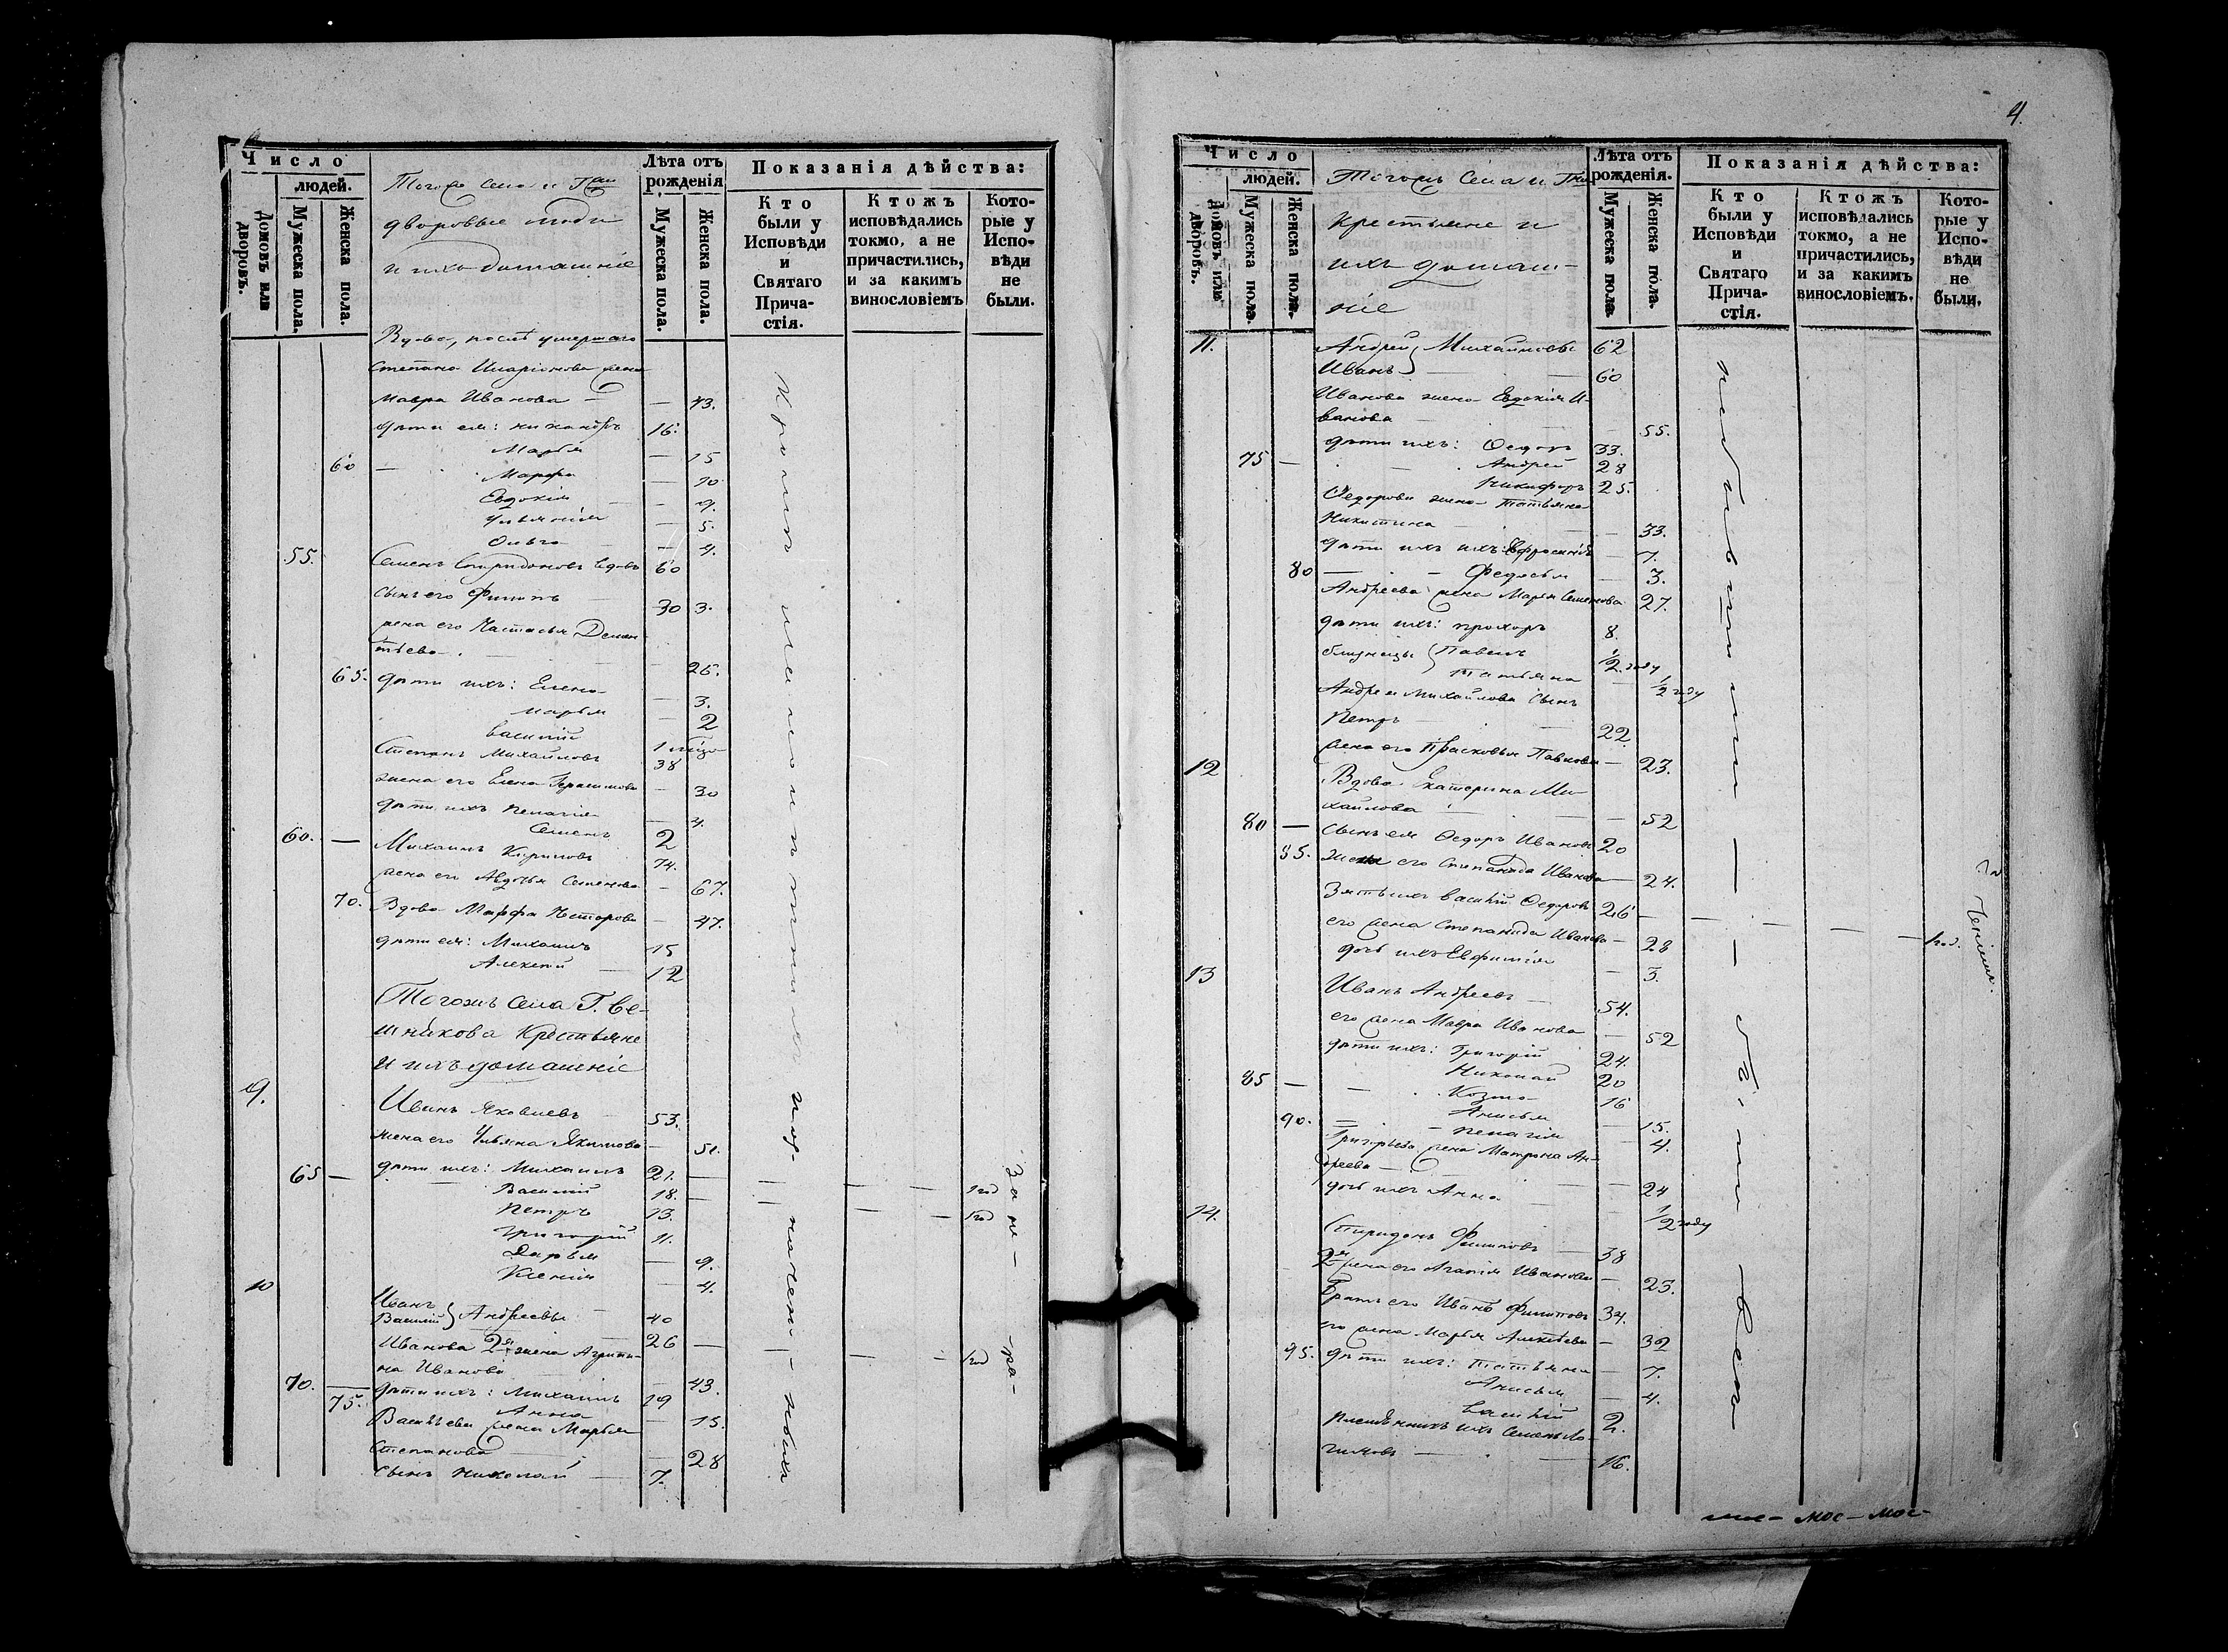 Число
людей.
Домовъ или дворовъ.
Мужеска пола.
Женска пола.
дворовые люди
и ихъ домашніе
Лѣта отъ рожденія
Мужеска пола.
Женска пола.
Показанія дѣйства:
Кто были у Исповѣди и Святаго Прича-стія.
Ктожъ исповѣдались токмо, а не причастились, и за какимъ винословіемъ
Кото-рые у Испо-вѣди не были.
Вдова, послѣ умершаго
Степана Иларіонова жена
Мавра Иванова — — 43.
дѣти ея: Никандръ 16.
Марья — 15
60 — Марфа — 10
Евдокія — 9.
Ульянія — 5.
Ольга — 4.
55. Семенъ Спиридоновъ вдовъ 60
сынъ его Филипъ 30 3.
жена его Настасья Демен-
тьева — 26.
65. дѣти ихъ: Елена — 3.
Марья — 2
Василій 1
Степанъ Михайловъ 38
жена его Елена Герасимова — 30
дѣти ихъ Пелагія — 4.
Семенъ 2
60. — Михаилъ Кириловъ 74.
жена его Авдотья Семенова — 67.
70. Вдова Марфа Нестерова — 47.
дѣти ея: Михаилъ 15
Алексѣй 12
Тогожъ села Г. Ве-
шнякова Крестьяне
и ихъ домашніе
9. Иванъ Яковлевъ 53.
жена его Ульяна Якимова — 51.
65 — дѣти ихъ: Михаилъ 21.
Василій 18. 1 год
Петръ 13. 1 год
Григорій 11.
Дарья — 9.
Ксенія — 4.
10 Иванъ 40
Василій } Андреевы 26
Иванова 2я жена Агрипи-
на Иванова — 43.
70. дѣти ихъ: Михаилъ 19
75. Анна — 15.
Васильева жена Марья
Степанова — 28
сынъ Николай 7.
4.
Число
людей.
Домовъ или дворовъ.
Мужеска пола.
Женска пола.
Тогожъ села и
Крестьяне и
ихъ домаш-
ніе
Лѣта отъ рожденія.
Мужеска пола.
Женска пола.
Показанія дѣйства:
Кто были у Исповѣди и Святаго Прича-стія.
Ктожъ исповѣдались токмо, а не причастились, и за какимъ винословіемъ.
Кото-рые у Испо-вѣди не были.
11. Андрей } Михайловы 62
Иванъ 60
Иванова жена Евдокія И-
ванова — 55.
дѣти ихъ: Ѳедоръ 33.
75 — Андрей 28
Никифоръ 25.
Ѳедорова жена Татьяна
Никитина — 33.
дѣти ихъ: Евфросинія — 7.
80 — Федосья — 3.
Андреева жена Марья Семенова 27.
дѣти ихъ: Прохоръ 8.
близнецы { Павелъ 1/2 году
Татьяна — 1/2 году
Андрея Михайлова сынъ
Петръ 22.
жена его Прасковья Павлова — 23.
12 Вдова Екатерина Ми-
хайлова — 52
80 — сынъ ея Ѳедоръ Ивановъ 20
85. жена его Степанида Иванова — 24.
Зять ихъ Василій Ѳедоровъ 26 —
его жена Степанида Иванова — 28
дочь ихъ Евфимія — 3.
13 Иванъ Андреевъ 54.
его жена Мавра Иванова — 52
дѣти ихъ: Григорій 24.
85 — Николай 20
Козма 16
90. Анисья — 15.
Пелагія — 4.
Григорьева жена Матрона Ан-
дреева — 24
дочь ихъ Анна — 1/2 году
14. Спиридонъ Филиповъ 38
2я жена его Агапія Иванова — 23.
Братъ его Иванъ Филиповъ 34.
его жена Марья Алексѣева — 32
95. дѣти ихъ: Татьяна — 7.
Анисья — 4.
Василій 2.
Племянникъ ихъ Семенъ Ло-
гиновъ — 16.